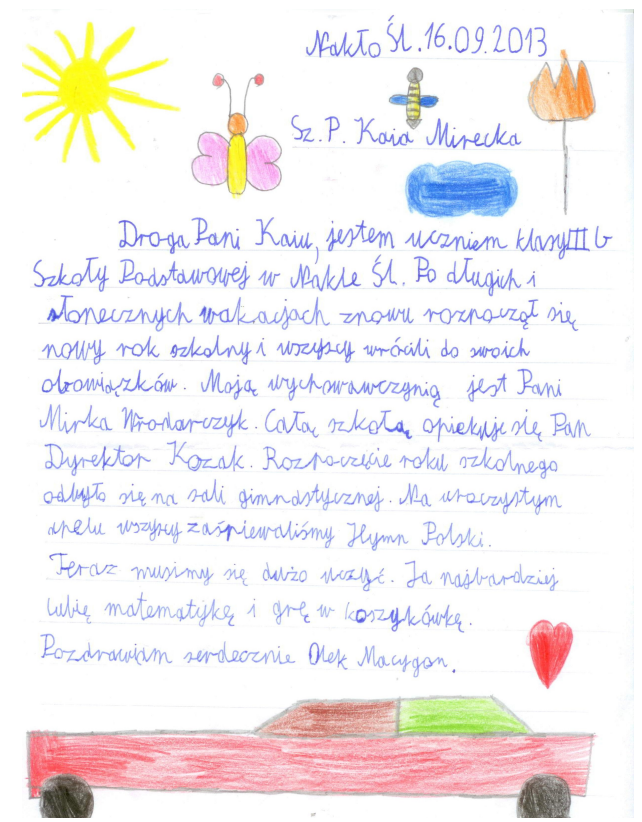 Nakło Śl. 16.09.2013
Sz. P. Kaia Mirecka
Droga Pani Kaiu, jestem uczniem klasy III b
Szkoły Podstawowej w Nakle Śl. Po długich i
słonecznych wakacjach znowu rozpoczął się
nowy rok szkolny i wszyscy wrócili do swoich
obowiązków. Moją wychowawczynią jest Pani
Mirka Włodarczyk. Całą szkołą opiekuje się Pan
Dyrektor Kozak. Rozpoczęcie roku szkolnego
odbyło się na sali gimnastycznej. Na uroczystym
apelu wszyscy zaśpiewaliśmy Hymn Polski.
Teraz musimy się dużo uczyć. Ja najbardziej
lubię matematykę i grę w koszykówkę.
Pozdrawiam serdecznie Olek Macygon.